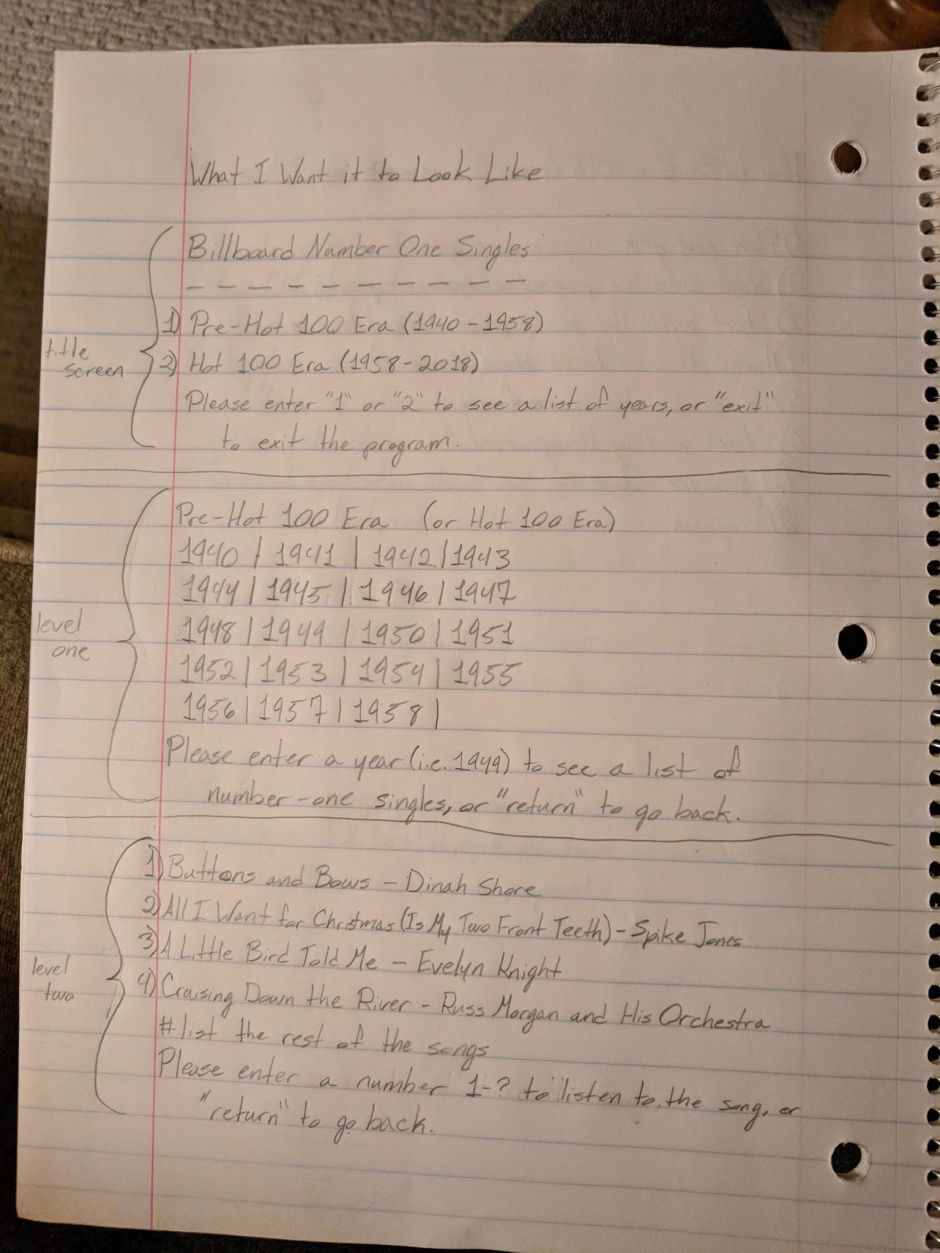 What I Want it to Look Like
Billboard Number One Singles
— — — — — — — — — —
1) Pre-Hot 100 Era (1940-1958)
title
screen
2) Hot 100 Era (1958-2018)
Please enter "1" or "2" to see a list of years, or "exit"
to exit the program.
Pre-Hot 100 Era (or Hot 100 Era)
1940 | 1941 | 1942 | 1943
1944 | 1945 | 1946 | 1947
level
one
1948 | 1949 | 1950 | 1951
1952 | 1953 | 1954 | 1955
1956 | 1957 | 1958 |
Please enter a year (i.e. 1949) to see a list of
number-one singles, or "return" to go back.
1) Buttons and Bows - Dinah Shore
2) All I Want for Christmas (Is My Two Front Teeth) - Spike Jones
3) A Little Bird Told Me - Evelyn Knight
level
two
4) Cruising Down the River - Russ Morgan and His Orchestra
# list the rest of the songs
Please enter a number 1-? to listen to the song, or
"return" to go back.